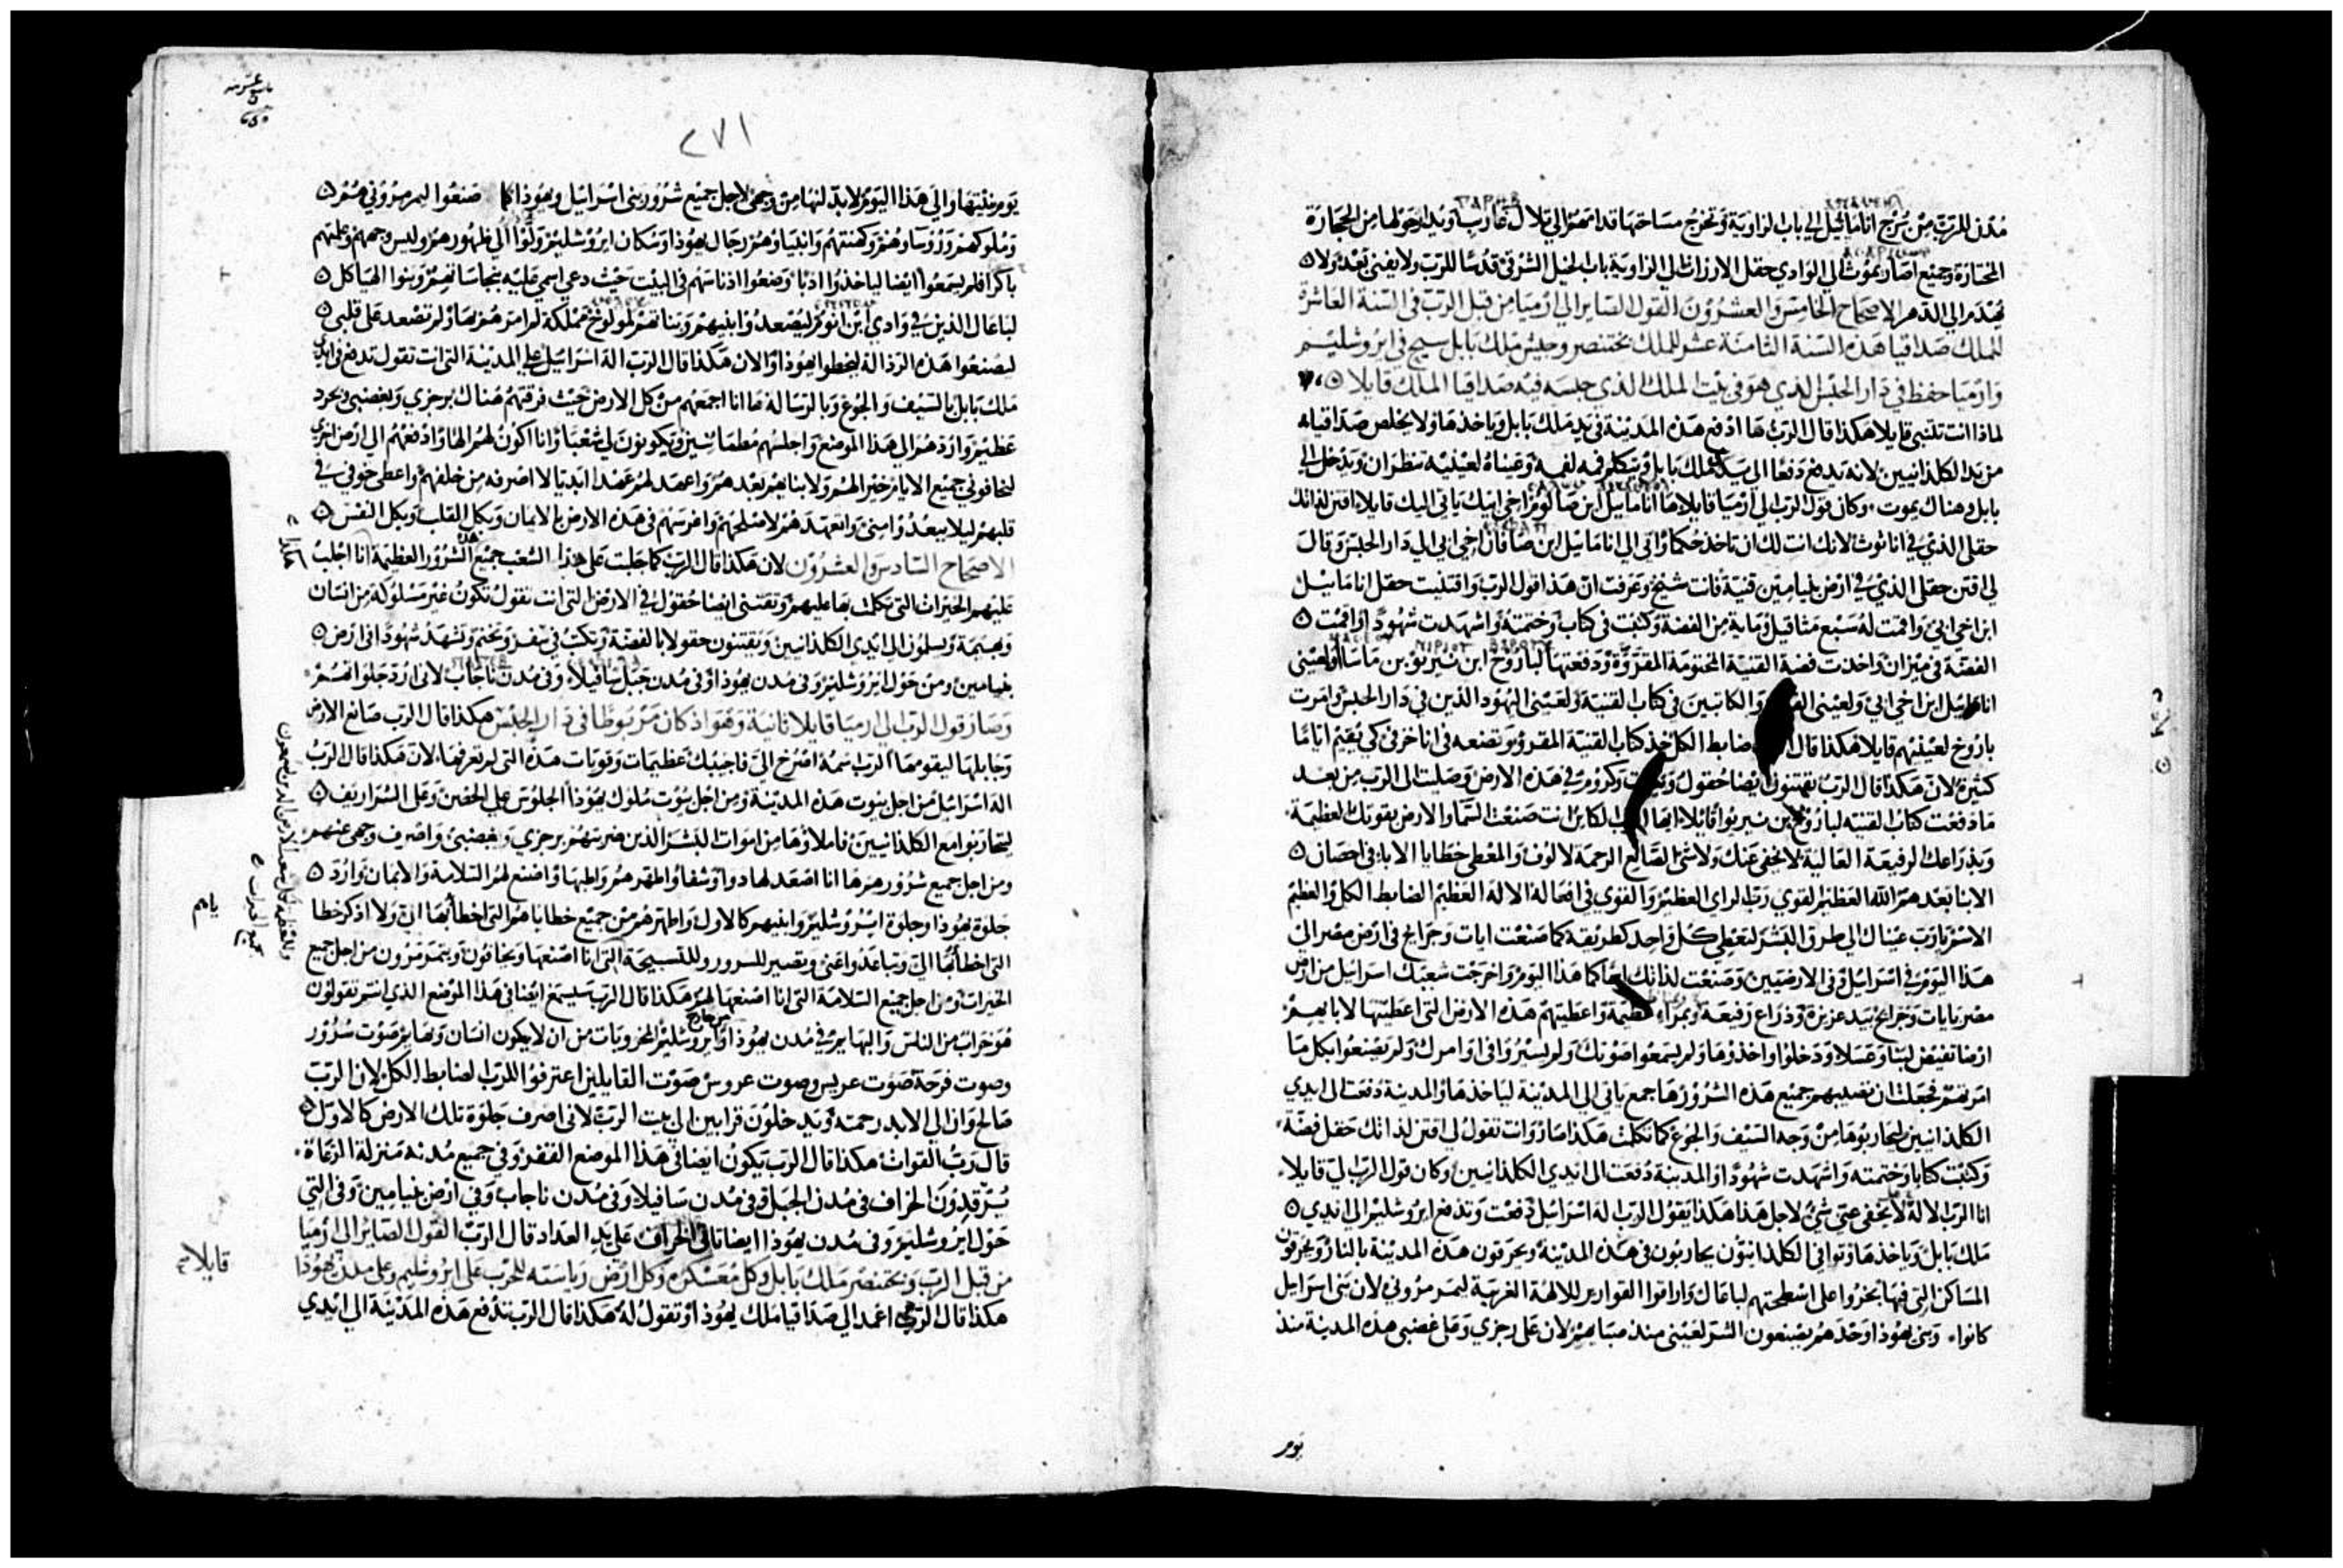 مدن للرب من برج اناماثيل الى باب الزاوية وتخرج مساحتها قدامهم الى تلال غارب ويدار حولها من الحجارة
المختارة وجميع اصاريموث الى الوادي حقل الارزات الى الزاوية باب الخيل الشرقي قدسا للرب ولا يفنى بعد ولا
يهدم الى الدهر الاصحاح الخامس والعشرون القول الصاير الى ارميا من قبل الرب في السنة العاشرة
للملك صداقيا هذه السنة الثامنة عشر للملك بختنصر وجيش ملك بابل سيج في ايروشليم
وارميا حفظ في دار الحبس الذي هو في بيت الملك الذي حبسه فيه صداقيا الملك قايلا
لماذا انت تتنبى قايلا هكذا قال الرب ها ادفع هذه المدينة في يد ملك بابل وياخذها ولا يخلص صداقيا
من يد الكلدانيين لانه يدفع دفعا الى يد ملك بابل ويتكلم فيه لفمه وعيناه لعينيه تنظران ويدخل الى
بابل وهناك يموت وكان قول الرب الى ارميا قايلا ها اناماييل ابن صالوم اخي ابيك ياتي اليك قايلا اقتن لذاتك
حقلي الذي في اناثوث لانك انت لك ان تاخذ حكما واتى الى اناماييل ابن صالوم اخي ابي الى دار الحبس وقال
لي اقتن حقلي الذي في ارض بنيامين قنية فانت شيخ وعرفت ان هذا قول الرب واقتنيت حقل اناماييل
ابن اخي ابي واقمت له سبع مثاقيل وماية من الفضة وكتبت في كتاب وختمته واشهدت شهودا واقمت
الفضة في ميزان واخذت فضة القنية المختومة المقروة ودفعتها لباروخ ابن نيريو بن ماسا ولعيني
اناماييل ابن اخي ابي ولعيني والكاتبين في كتاب القنية ولعيني اليهود الذين في دار الحبس وامرت
باروخ لعينيهم قايلا هكذا قال ضابط الكل خذ كتاب القنية المقرو وتضعه في اناخزف كي يقيم اياما
كثيرة لان هكذا قال الرب تقتنون ايضا حقول وكروم في هذه الارض وصليت الى الرب من بعد
ما دفعت كتاب القنية لباروخ بن نيريوا قايلا ايها الرب الكاين انت صنعت السما والارض بقوتك العظيمة
وبذراعك الرفيعة العالية لا يخفى عنك ولا شى الصانع الرحمة لالوف والمعطي خطايا الابا في احضان
الابنا بعدهم الله العظيم القوي رب الراي العظيم والقوي في افعاله الاله العظيم الضابط الكل والعظيم
الاسم يا رب عيناك الى طرق البشر لتعطي كل واحد كطريقه كما صنعت ايات وجرايح في ارض مصر الى
هذا اليوم في اسراييل وفي الارضيين وصنعت لذاتك اسما كما هذا اليوم واخرجت شعبك اسراييل من ارض
مصر بايات وجرايح بيد عزيزة وذراع رفيعة وبمراي عظيمة واعطيتهم هذه الارض التي اعطيتها لابايهم
ارضا تفيض لبنا وعسلا ودخلوا واخذوها ولم يسمعوا صوتك ولم يسيروا في اوامرك ولم يصنعوا بكل ما
امرتهم فجعلت ان تصيبهم جميع هذه الشرور ها جمع ياتي الى المدينة لياخذها والمدينة دفعت الى ايدي
الكلدانيين ليحاربوها من وجه السيف والجوع كما تكلمت هكذا صار وانت تقول لي اقتن لذاتك حقل فضة
وكتبت كتابا وختمته واشهدت شهودا والمدينة دفعت الى ايدي الكلدانيين وكان قول الرب لي قايلا
انا الرب الاله لا يخفى عني شي لاجل هذا هكذا يقول الرب اله اسراييل دفعت وتدفع ايروشليم الى ايدي
ملك بابل وياخذها وتوافي الكلدانيون يحاربون في هذه المدينة ويحرقون هذه المدينة بالنار ويحرقون
المساكن التي فيها بخروا على اسطحتهم لباعال واراقوا القوارير للالهة الغريبة ليمرمروني لان بني اسراييل
كانوا وبني يهوذا وحدهم يصنعون الشر لعيني منذ صبايهم لان على رجزي وعلى غضبي هذه المدينة منذ
يوم
٢٧١
يوم بنيتها والى هذا اليوم لابدلنها من وجهي لاجل جميع شرور بني اسراييل ويهوذا كما صنعوا ليمرمروني هم
وملوكهم وروساوهم وكهنتهم وانبياوهم رجال يهوذا وسكان ايروشليم وولوا الي ظهورهم وليس وجههم وعلمتهم
باكرا فلم يسمعوا ايضا لياخذوا ادبا وضعوا ادناسهم في البيت حيث دعي اسمي عليه بنجاساتهم وبنوا الهياكل
لباعال الذين في وادي ابن انوم ليصعدوا بنيهم وبناتهم لمولوخ مملكة لم امرهم بها ولم تصعد على قلبي
ليصنعوا هذه الرذالة ليخطوا يهوذا والان هكذا قال الرب اله اسراييل على المدينة التي انت تقول تدفع في ايدي
ملك بابل بالسيف والجوع وبالرسالة ها انا اجمعهم من كل الارض حيث فرقتهم هناك برجزي وبغضبي وبحرد
عظيم واردهم الى هذا الموضع واجلسهم مطمانين ويكونون لي شعبا وانا اكون لهم الها وادفعهم الى ارض اخرى
لتخافوني جميع الايام خير الهم ولابنايهم بعدهم واعهد لهم عهدا ابديا لا اصرفه من خلفهم واعطي خوفي في
قلبهم ليلا يبعدوا مني واتعهدهم لاصلحهم واغرسهم في هذه الارض بالايمان وبكل القلب وبكل النفس
الاصحاح السادس والعشرون لان هكذا قال الرب كما جلبت على هذا الشعب جميع الشرور العظيمة انا اجلب
عليهم الخيرات التي تكلمت بها عليهم وتقتنى ايضا حقول في الارض التي انت تقول تكون غير مسلوكة من انسان
وبهيمة وسلمون الى ايدي الكلدانيين ويقتنون حقولا بالفضة وتكتب في سفر وتختم وتشهد شهودا في ارض
بنيامين ومن حول ايروشليم وفي مدن يهوذا وفي مدن جبل سافيلا وفي مدن ناجاب لاني ارد جلواتهم
وصار قول الرب الى ارميا قايلا ثانية وهو اذ كان مربوطا في دار الحبس هكذا قال الرب صانع الارض
وجابلها ليقومها الرب اسمه اصرخ الي فاجيبك عظيمات وقويات هذه التي لم تعرفها لان هكذا قال الرب
اله اسراييل من اجل بيوت هذه المدينة ومن اجل بيوت ملوك يهوذا الجلوس على الحصن وعلى الشراريف
ليتحاربوا مع الكلدانيين فاملاوها من اموات البشر الذين ضربتهم برجزي وبغضبي واصرف وجهي عنهم
ومن اجل جميع شرورهم ها انا اصعد لها دوا وشفا واطهرهم واطبها واصنع لهم السلامة والايمان وارد
جلوة يهوذا وجلوة ايروشليم وابنيهم كالاول واطهرهم من جميع خطاياهم التي اخطاوا بها الي ولا اذكر خطا
التي اخطاوا بها الي وتباعدوا عني ويصير للسرور وللتسبيحة التي انا اصنعها ويخافون ويتمرمرون من اجل جميع
الخيرات ومن اجل جميع السلامة التي انا اصنعها لهم هكذا قال الرب سيسمع ايضا في هذا الموضع الذي انتم تقولون
هو خراب من الناس والبهايم في مدن يهوذا وايروشليم المخروبات من ان لا يكون انسان وبهايم صوت سرور
وصوت فرحة صوت عريس وصوت عروس صوت القايلين اعترفوا للرب الضابط الكل لان الرب
صالح وان الى الابد رحمته ويدخلون قرابين الى بيت الرب لاني اصرف جلوة تلك الارض كالاول
قال رب القوات هكذا قال الرب يكون ايضا في هذا الموضع القفر وفي جميع مدنه منزلة الرعاة
يرقدون الخراف في مدن الجبل وفي مدن سافيلا وفي مدن ناجاب وفي ارض بنيامين وفي التي
حول ايروشليم وفي مدن يهوذا ايضا تاتي الخراف على يد العداد قال الرب القول الصاير الى ارميا
من قبل الرب وبختنصر ملك بابل وكل معسكره وكل ارض رياسته للحرب على ايروشليم وعلى مدن يهوذا
هكذا قال الرب اعمد الى صداقيا ملك يهوذا وتقول له هكذا قال الرب تدفع هذه المدينة الى ايدي
قايلا